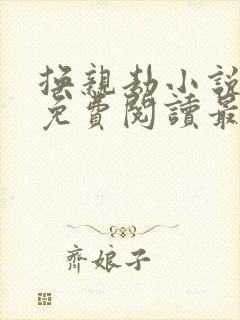 換親劫小說
免費閱讀最
齊娘子